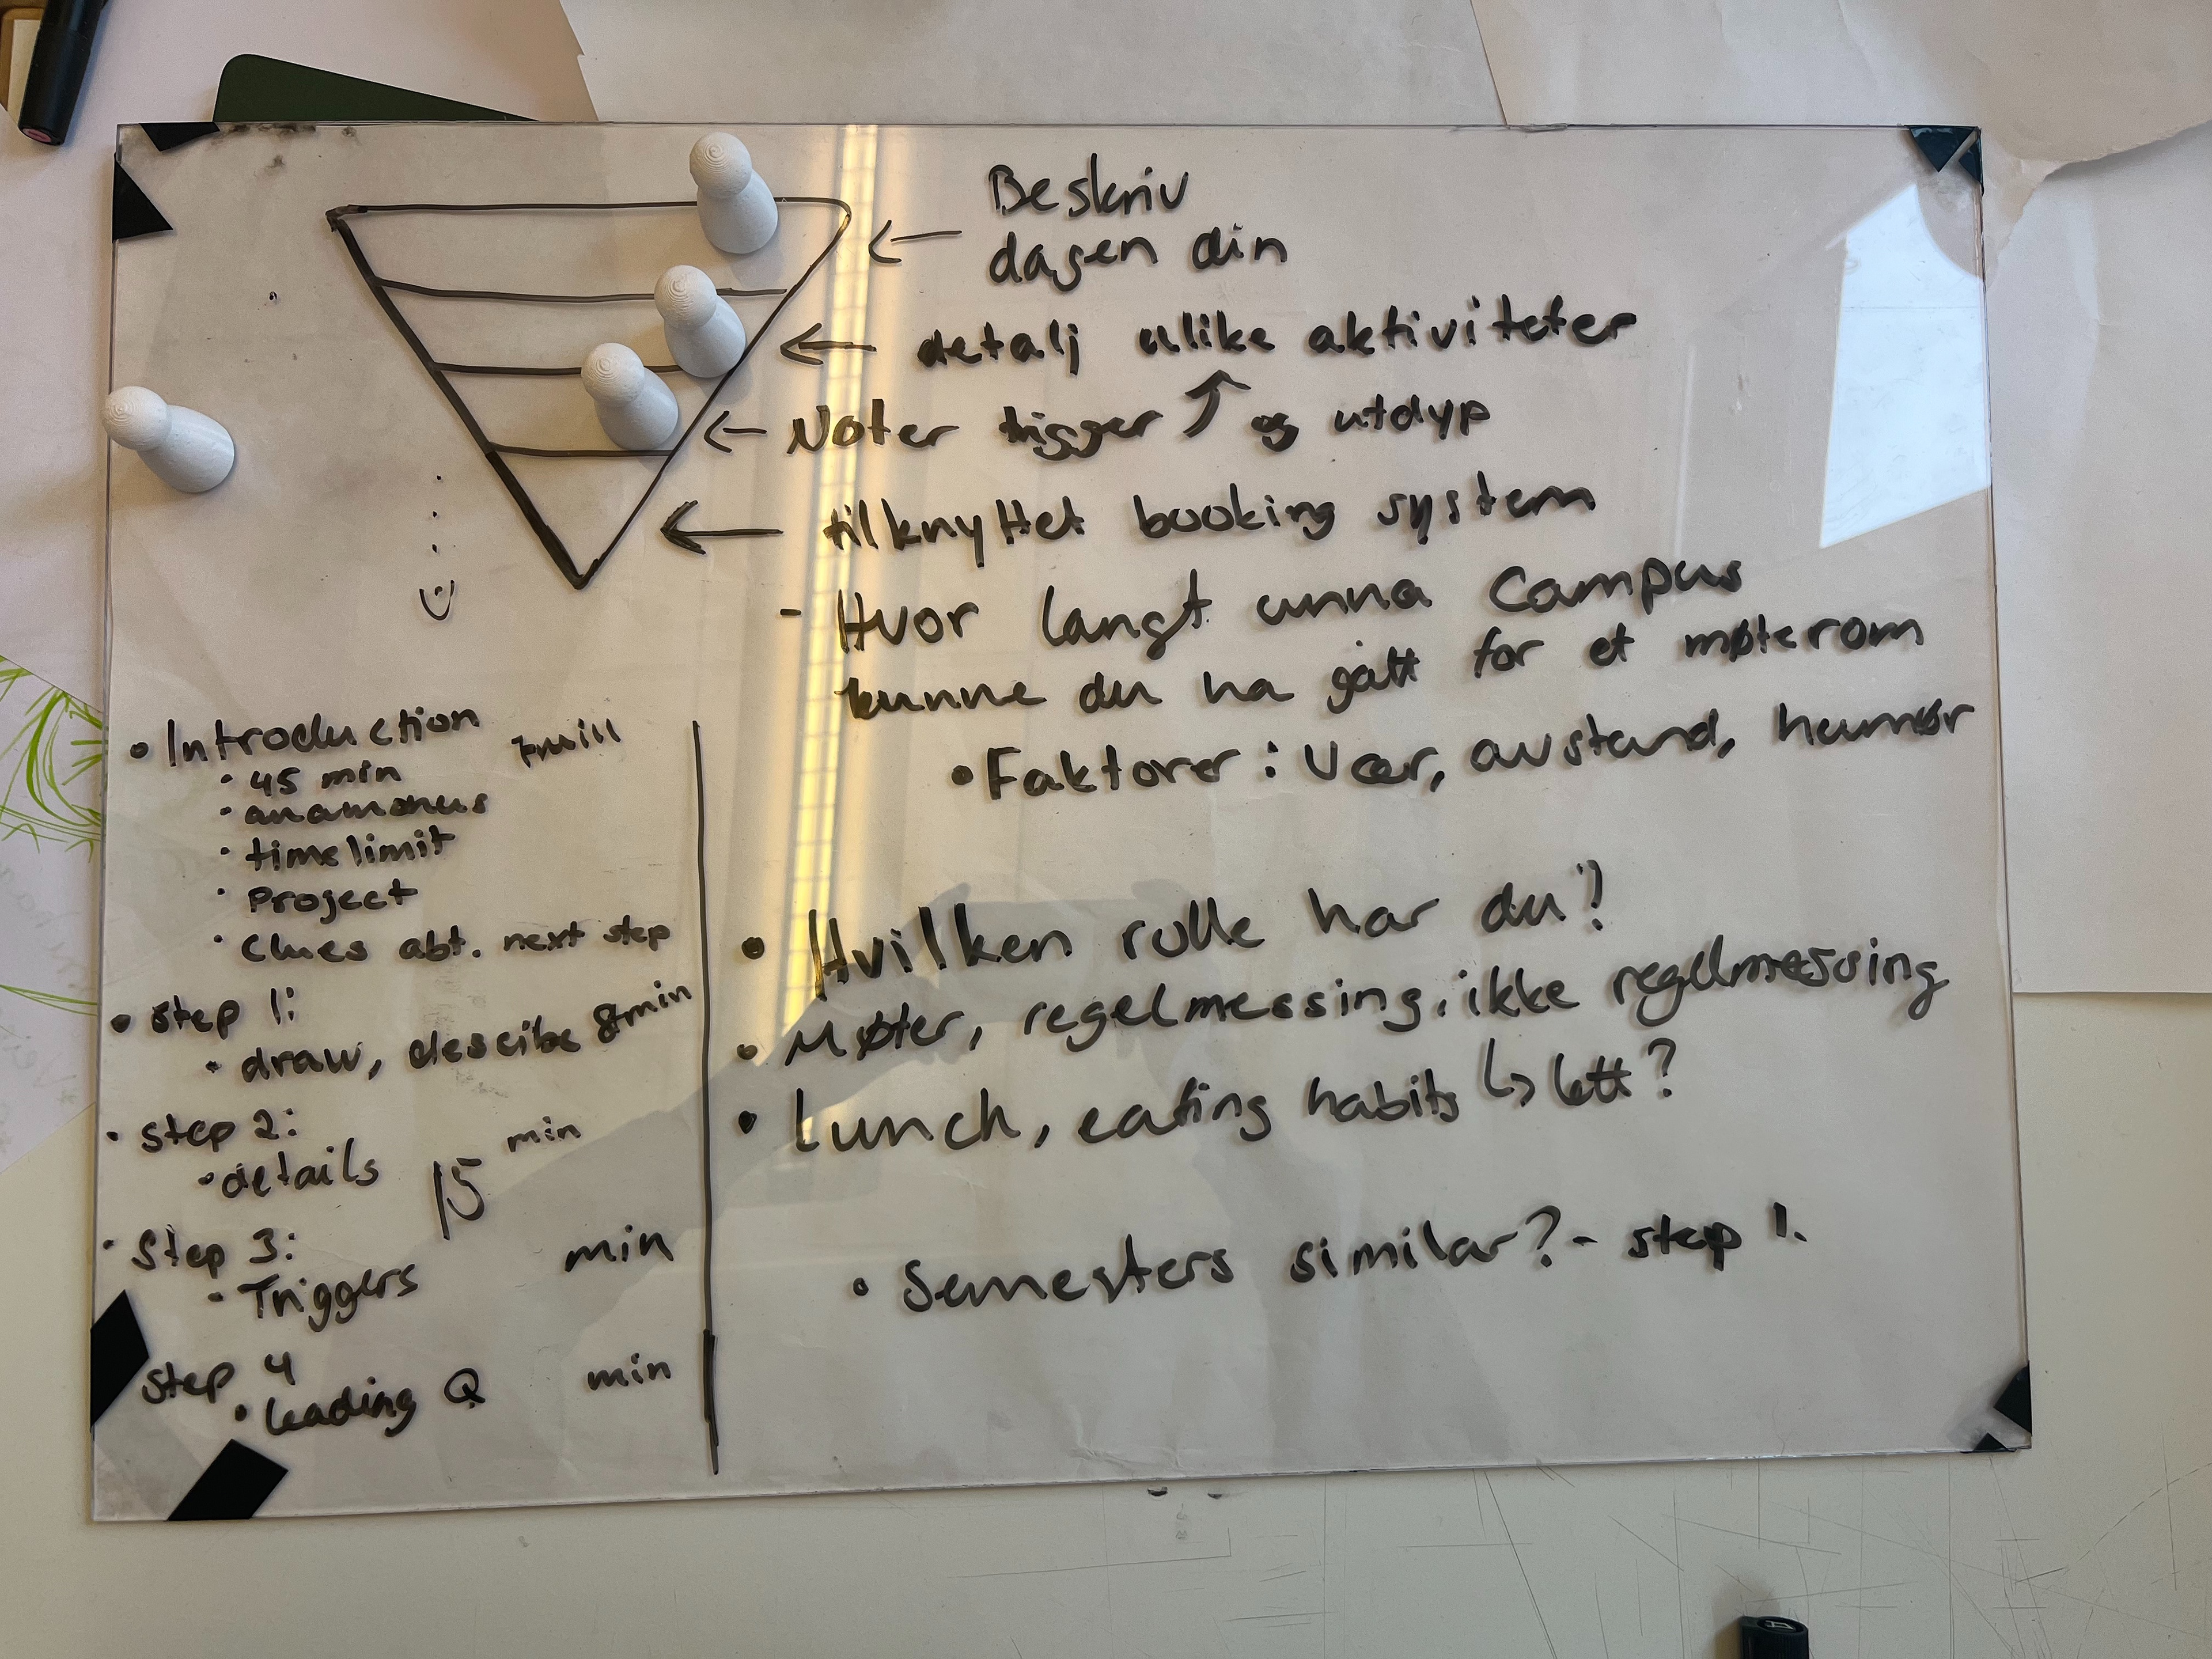 Beskriv
dagen din
detalj ulike aktiviteter
Noter trigger og utdyp
tilknyttet booking system
- Hvor langt unna Campus
kunne du ha gått for et møterom
• Faktorer: Vær, avstand, humør
• Introduction 7min
• 45 min
• anamonus
• timelimit
• Project
• Clues abt. next step
• step 1:
• draw, descibe 8min
• step 2:
• details 15 min
• Step 3:
• Triggers min
step 4
• Leading Q min
• Hvilken rolle har du?
• Møter, regelmessing, ikke regelmessing
• Lunch, eating habits ↳ lett?
• Semesters similar? - step 1.